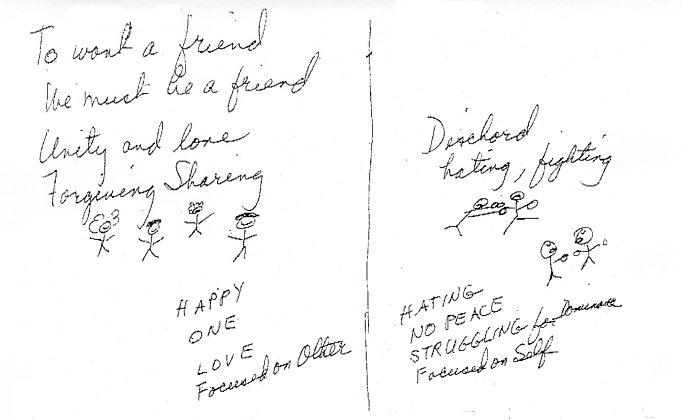 To want a friend
We must be a friend
Unity and love
Forgiving Sharing
HAPPY
ONE
LOVE
Focused on Other
Dischord
hating, fighting
HATING
NO PEACE
STRUGGLING for Dominance
Focused on Self